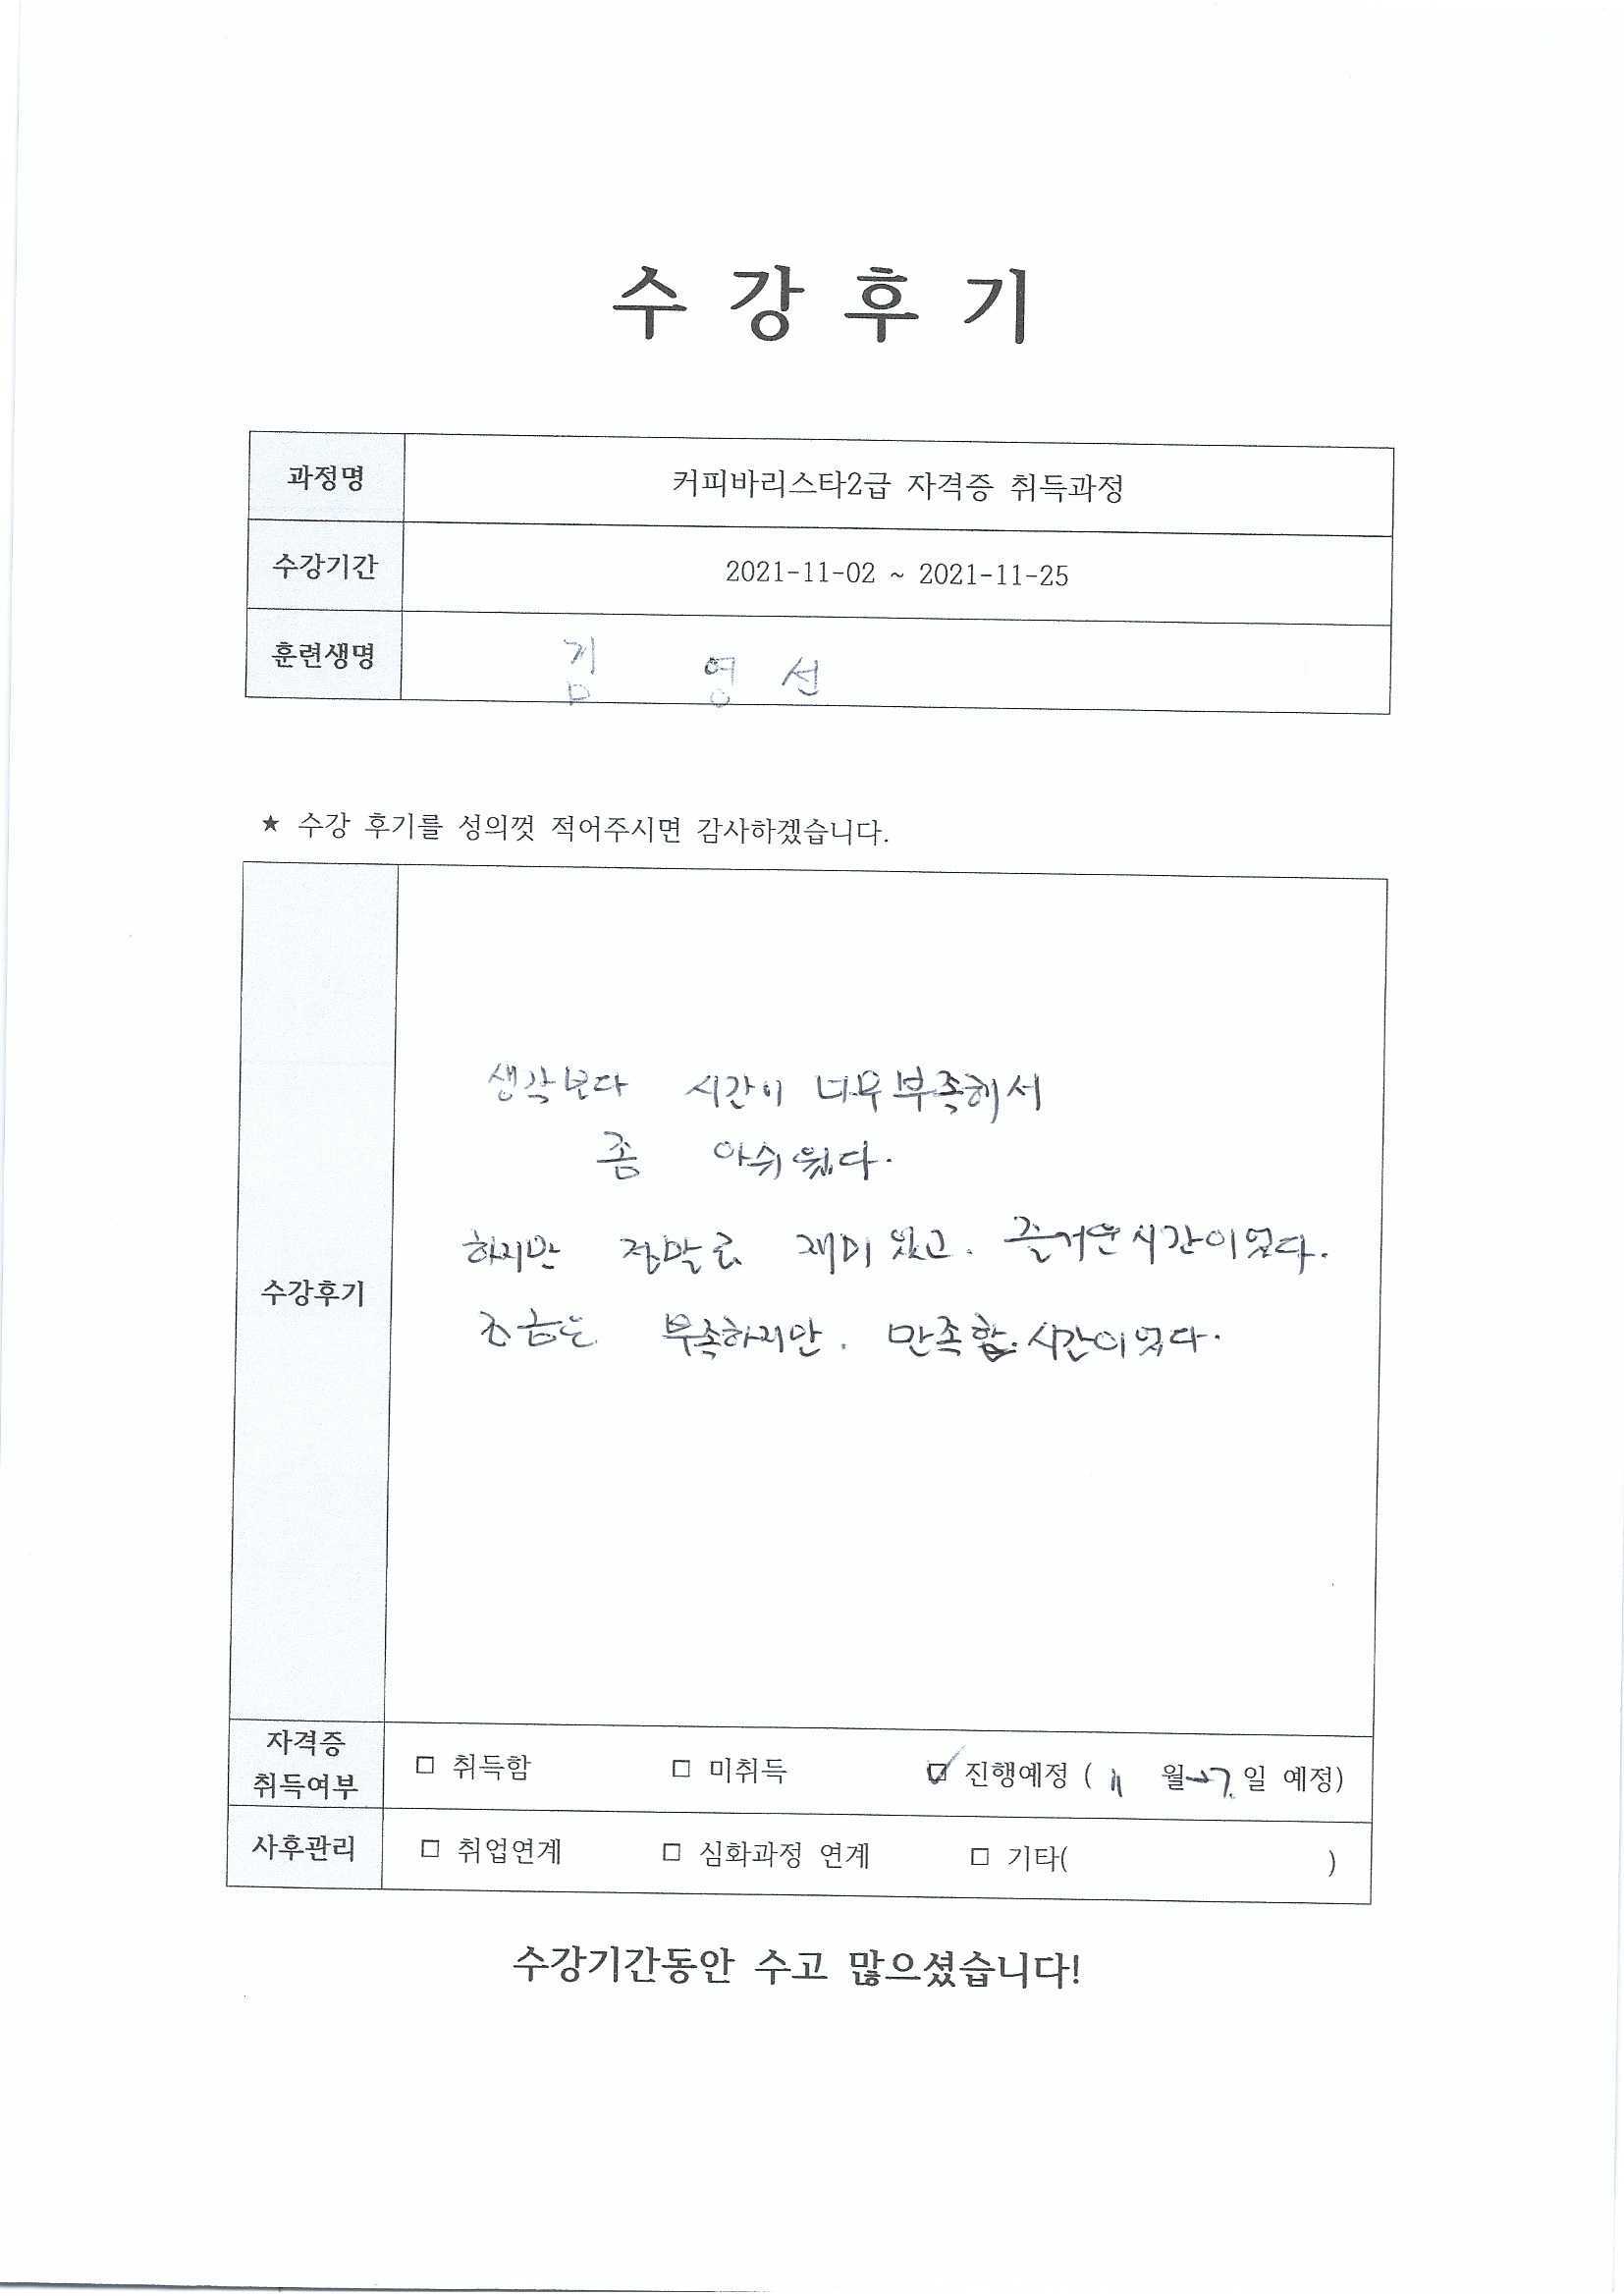 수 강 후 기
과정명 커피바리스타2급 자격증 취득과정
수강기간 2021-11-02 ~ 2021-11-25
훈련생명 김 영 선
★ 수강 후기를 성의껏 적어주시면 감사하겠습니다.
생각보다 시간이 너무 부족해서
좀 아쉬웠다.
하지만 정말로 재미 있고. 즐거운 시간이었다.
수강후기
조금은 부족하지만. 만족함. 시간이었다.
자격증
취득여부 □ 취득함 □ 미취득 ☑ 진행예정 ( 11 월 27. 일 예정)
사후관리 □ 취업연계 □ 심화과정 연계 □ 기타( )
수강기간동안 수고 많으셨습니다!